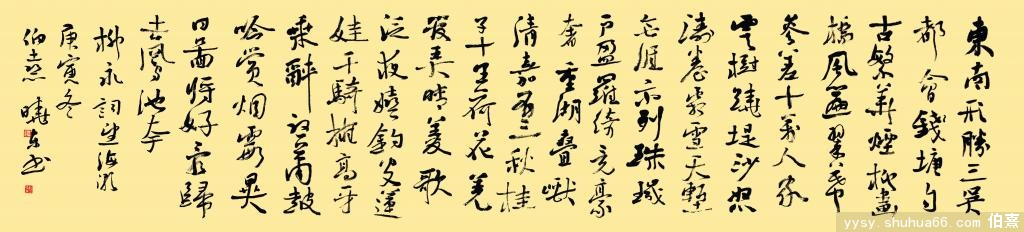 東南形勝三吳
都會錢塘自
古繁華煙柳畫
橋風簾翠幕
參差十萬人家
雲樹繞堤沙怒
濤卷霜雪天塹
無涯市列珠璣
戶盈羅綺競豪
奢重湖疊巘
清嘉有三秋桂
子十里荷花羌
管弄晴菱歌
泛夜嬉釣叟蓮
娃千騎擁高牙
乘醉聽簫鼓
吟賞烟霞異
日圖將好景歸
去鳳池夸
柳永詞望海潮
庚寅冬
伯熹
曉东书
yysy.shuhua66.com 伯熹